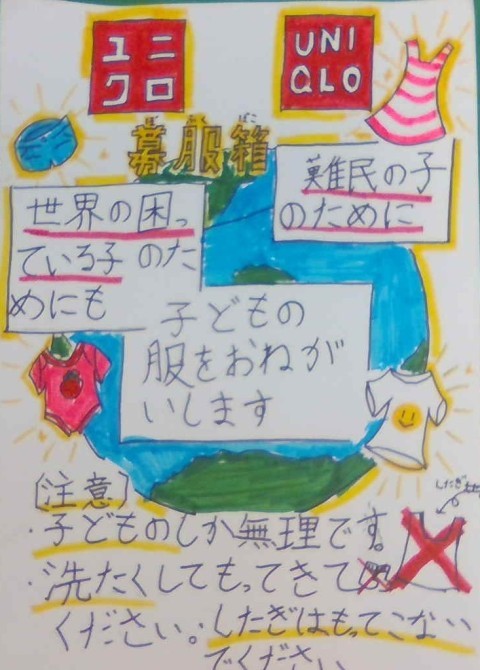 ユニ
クロ
UNI
QLO
ぼ ふく ばこ
幕服箱
難民の子
のために
世界の困っ
ている子のた
めにも
子どもの
服をおねが
いします
〔注意〕
・子どものしか無理です。
・洗たくしてもってきて
ください。・したぎはもってこない
でください
したぎ